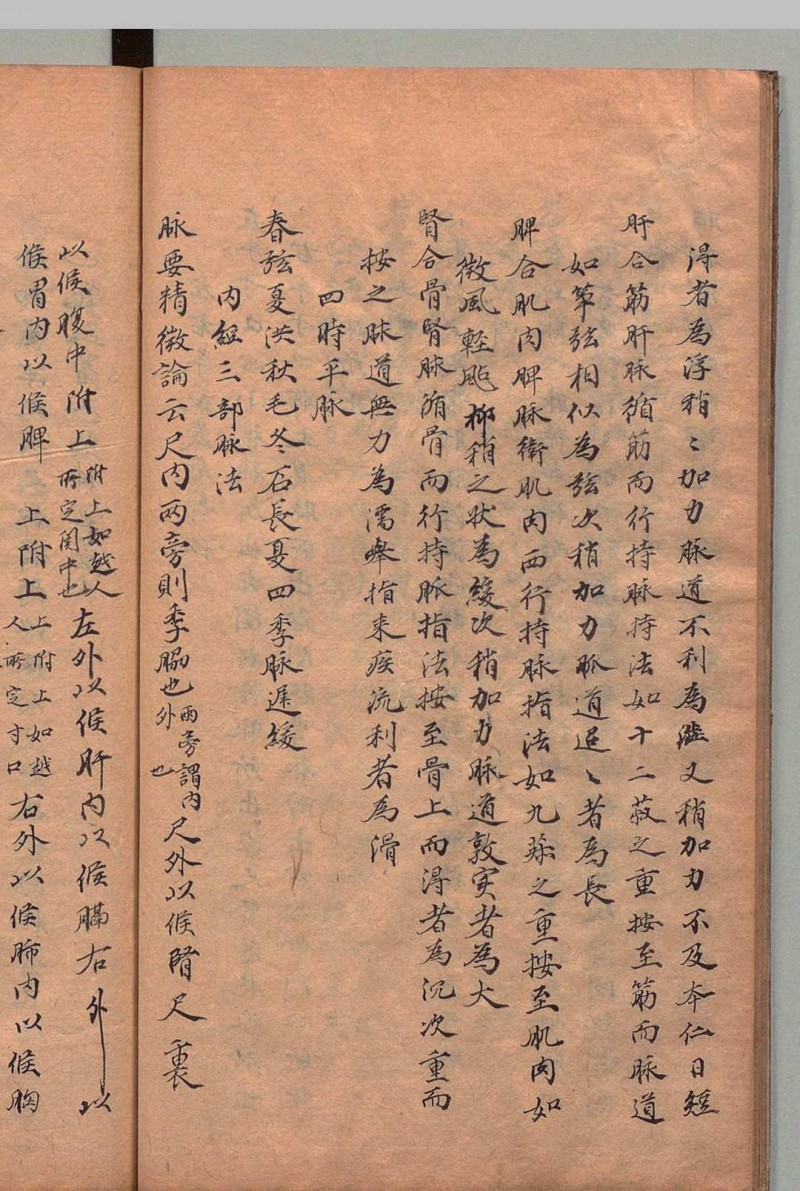 淂者為浮稍〻加力脉道不利為澁又稍加力不及本仁曰短
肝合筋肝脉循筋而行持脉持法如十二菽之重按至筋而脉道
如筝弦相似為弦次稍加力脉道迢〻者為長
脾合肌肉脾脉衛肌肉而行持脉指法如九菽之重按至肌肉如
微風輕颭柳稍之状為緩次稍加力脉道敦实者為大
腎合骨腎脉循骨而行持脈指法按至骨上而淂者為沉次重而
按之脉道無力為濡舉指来疾流利者為滑
四時平脉
春弦夏洪秋毛冬石長夏四季脉遲緩
内經三部脉法
脉要精微論云尺内两旁則季脇也兩旁謂内外也尺外以候腎尺裏
以候腹中附上附上如越人以所定関中也左外以候肝内以候膈右外以
候胃内以候脾上附上上附上如越人所定寸口右外以候肺内以候胸